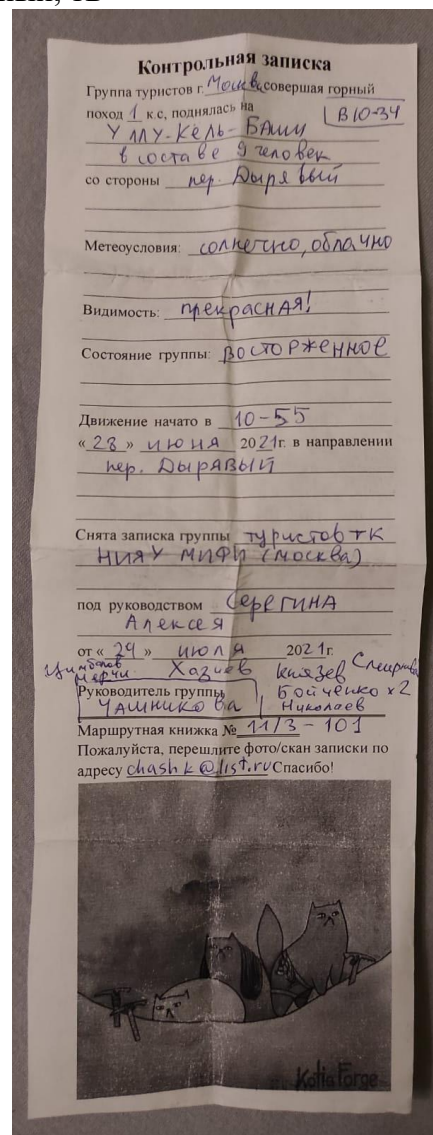 Контрольная записка
Группа туристов г. Москва, совершая горный
поход 1 к.с, поднялась на В 10-34
Уллу-Кель-Баши
в составе 9 человек
со стороны пер. Дырявый
Метеоусловия: солнечно, облачно
Видимость: прекрасная!
Состояние группы: восторженное
Движение начато в 10-55
« 28 » июня 2021г. в направлении
пер. Дырявый
Снята записка группы туристов ТК
НИЯУ МИФИ (Москва)
под руководством Серегина
Алексея
от « 24 » июля 2021г.
Цимбалов Хазиев Князев Смирнова
Мерчи Бойченко x2
Руководитель группы Николаев
Чашникова
Маршрутная книжка № 11/3 - 101
Пожалуйста, перешлите фото/скан записки по
адресу chashk@list.ru Спасибо!
Katia Forge